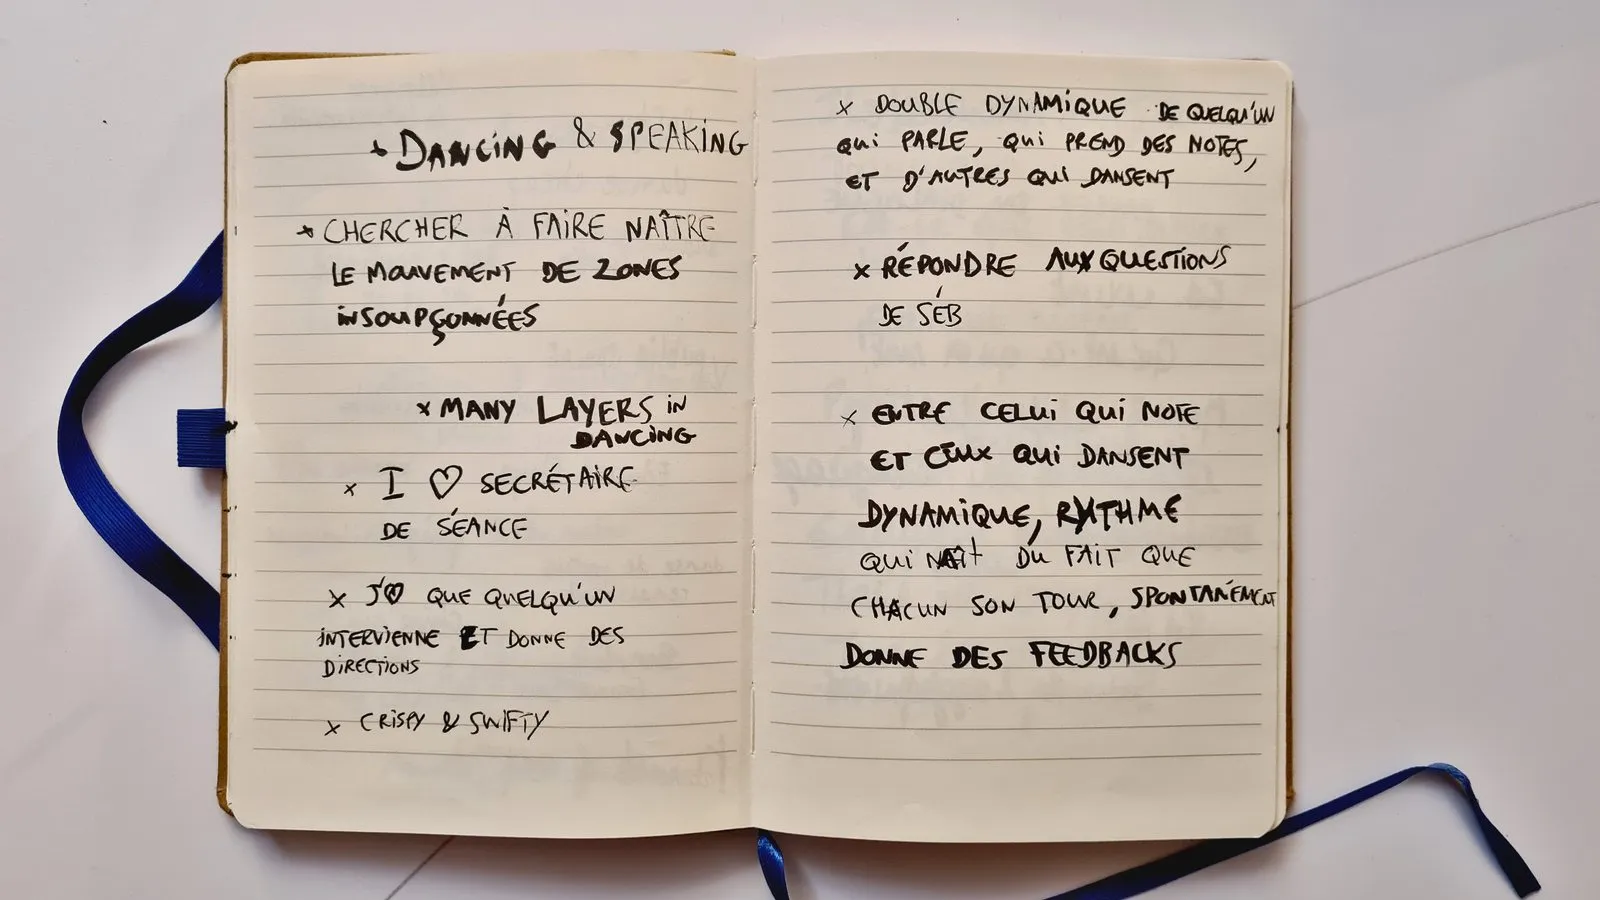 x DANCING & SPEAKING
x CHERCHER À FAIRE NAÎTRE
LE MOUVEMENT DE ZONES
INSOUPÇONNÉES
x MANY LAYERS IN
DANCING
x I ♡ SECRÉTAIRE
DE SÉANCE
x J'♡ QUE QUELQU'UN
INTERVIENNE ET DONNE DES
DIRECTIONS
x CRISPY & SWIFTY
x DOUBLE DYNAMIQUE DE QUELQU'UN
QUI PARLE, QUI PREND DES NOTES,
ET D'AUTRES QUI DANSENT
x RÉPONDRE AUX QUESTIONS
DE SÉB
x ENTRE CELUI QUI NOTE
ET CEUX QUI DANSENT
DYNAMIQUE, RYTHME
QUI NAÎT DU FAIT QUE
CHACUN SON TOUR, SPONTANÉMENT
DONNE DES FEEDBACKS